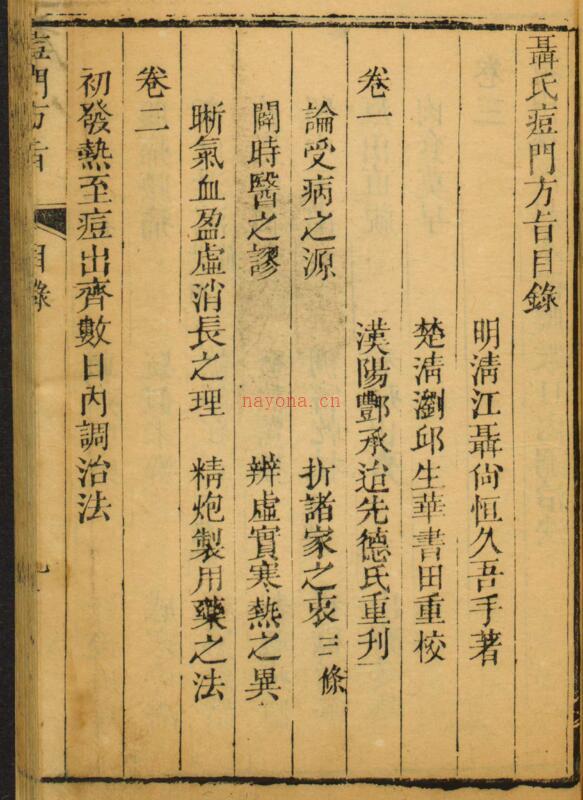 聶氏痘門方旨目錄
明清江聶尙恒久吾手著
楚清瀏邱生華書田重校
漢陽酆承治先德氏重刋
卷一
論受病之源 折諸家之衷 三條
闢時醫之謬 辨虛實寒熱之異
晰氣血盈虛消長之理 精炮製用藥之法
卷二
初發熱至痘出齊數日內調治法
痘門方旨 目錄
nayona.cn